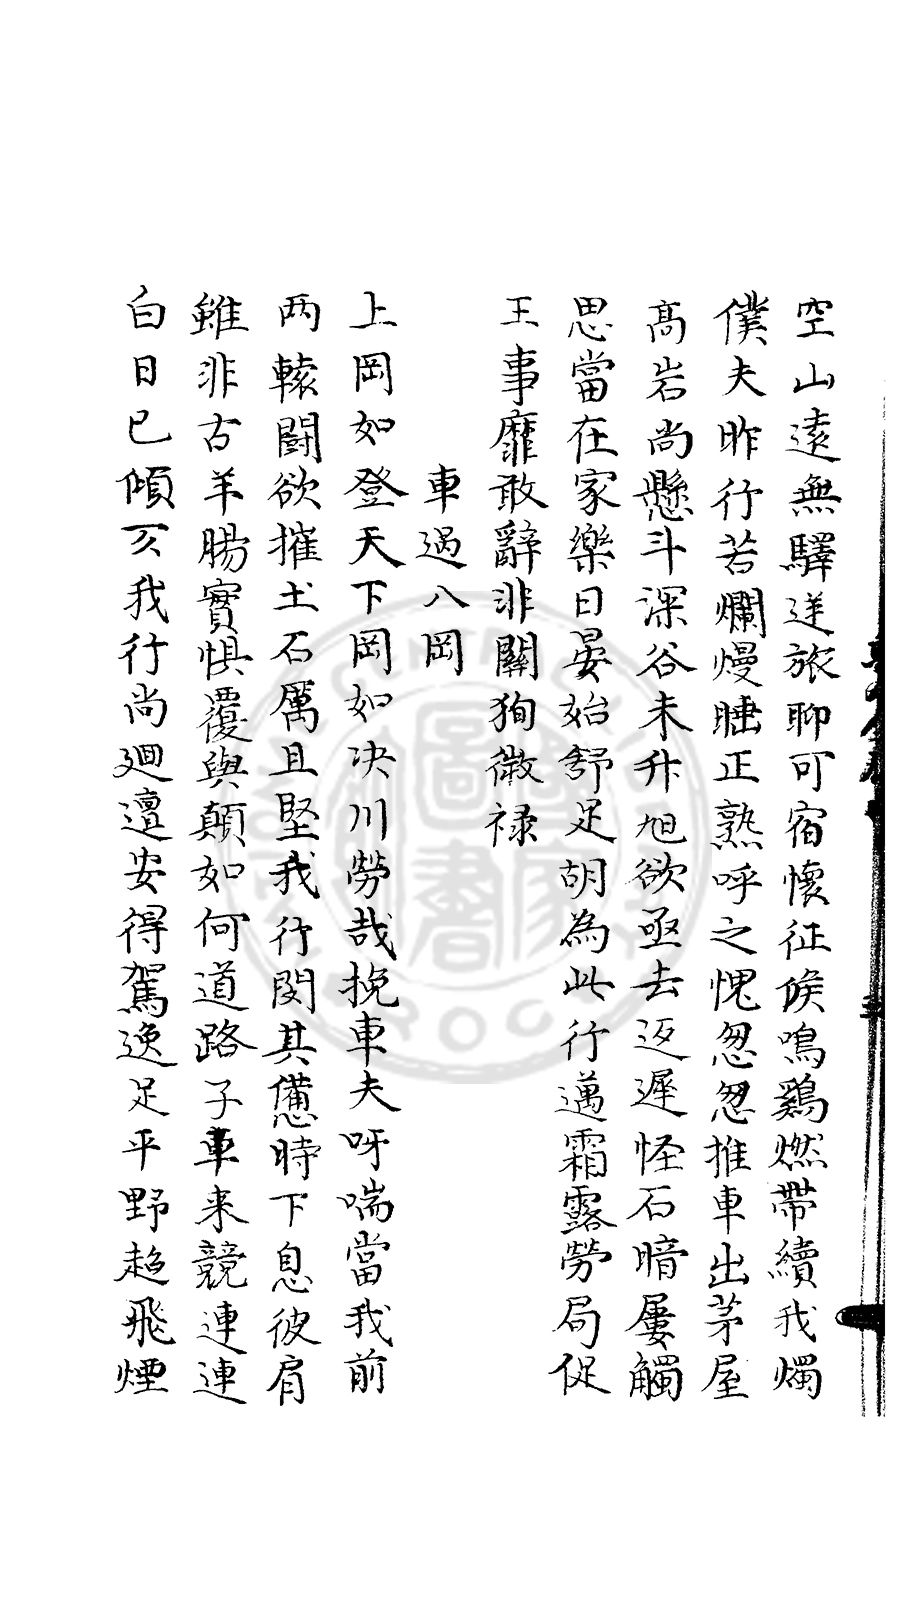 空山遠無驛逆旅聊可宿懷征候鳴鷄燃帶續我燭
僕夫昨行苦爛熳睡正熟呼之愧忽忽推車出茅屋
髙岩尚懸斗深谷未升旭欲亟去返遲怪石暗屢觸
思當在家樂日晏始舒足胡為此行邁霜露勞局促
王事靡敢辭非關狥微禄
車過八岡
上岡如登天下岡如决川勞哉挽車夫呀喘當我前
两轅鬭欲摧土石厲且堅我行閔其憊時下息彼肩
雖非古羊腸實惧覆與顛如何道路子車来競連連
白日已傾仄我行尚廻邅安得駕逸足平野超飛煙